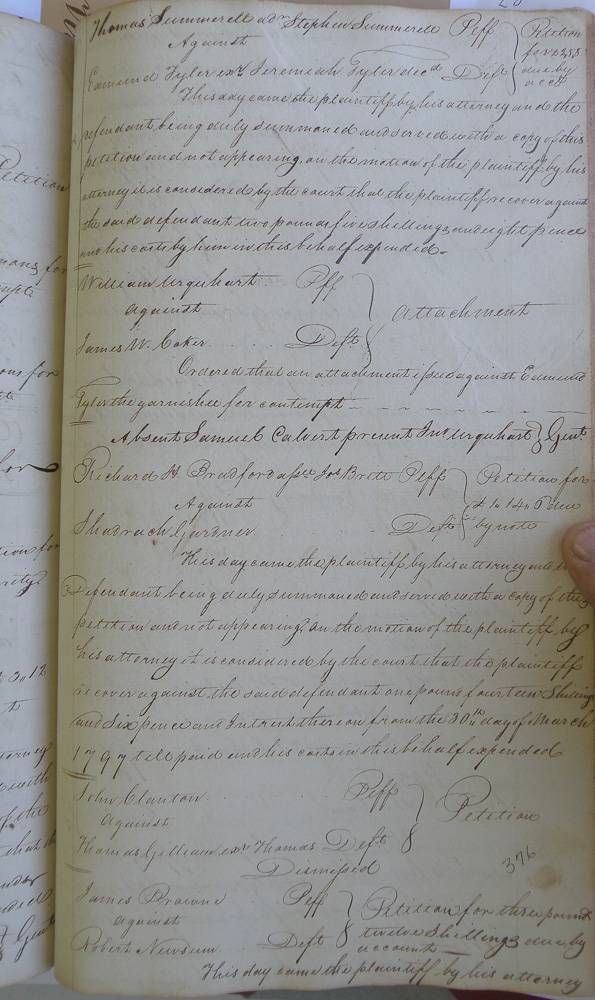 Thomas Summerell admr Stephen Summerell Peff } Petition
Against for 2 5 8
due by
Edmund Tyler exr Jeremiah Tyler decd Deft acct
This day came the plaintiff by his attorney and the
defendant being duly summoned and served with a copy of this
petition and not appearing, on the motion of the plaintiff by his
attorney it is considered by the court that the plaintiff recover against
the said defendant two pounds five shillings and eight pence
and his costs by him in this behalf expended.
William Urquhart Peff
against } Attachment
James W. Coker Deft
Ordered that an attachment issue against Edmund
Tyler the garnishee for contempt
Absent Samuel Calvert present Jno Urquhart } Gents
Richard H Bradford assee Jos Britt Peff } Petition for
Against £1 14 6 due
Shadrach Gardner Deft by note
This day came the plaintiff by his attorney and
Defendant being duly summoned and served with a copy of this
petition and not appearing, on the motion of the plaintiff by
his attorney it is considered by the court that the plaintiff
recover against the said defendant one pound fourteen Shillings
and Six pence and Intrest thereon from the 30th day of March
1797 till paid and his costs in this behalf expended
John Clanton Peff
against } Petition
Thomas Gilliam exr Thomas Deft
Dismissed
376
James Browne Peff } Petition for three pound
against twelve Shillings due by
Robert Newsum Deft account
This day came the plaintiff by his attorney